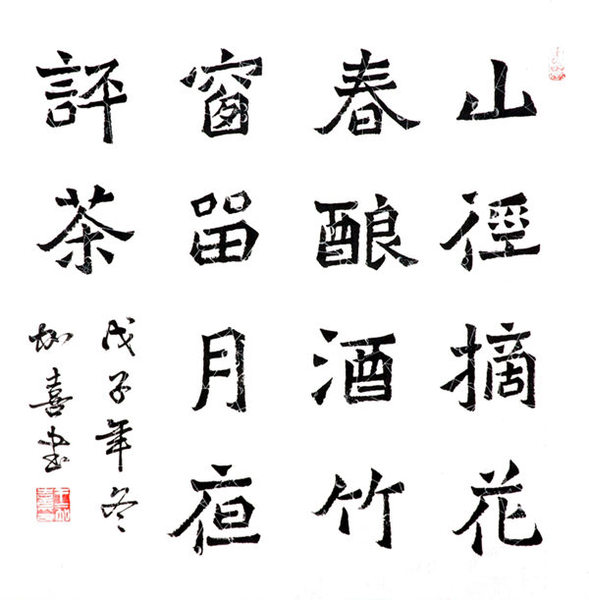 山徑摘花
春酿酒竹
窗留月夜
評茶
戊子年冬
喜书